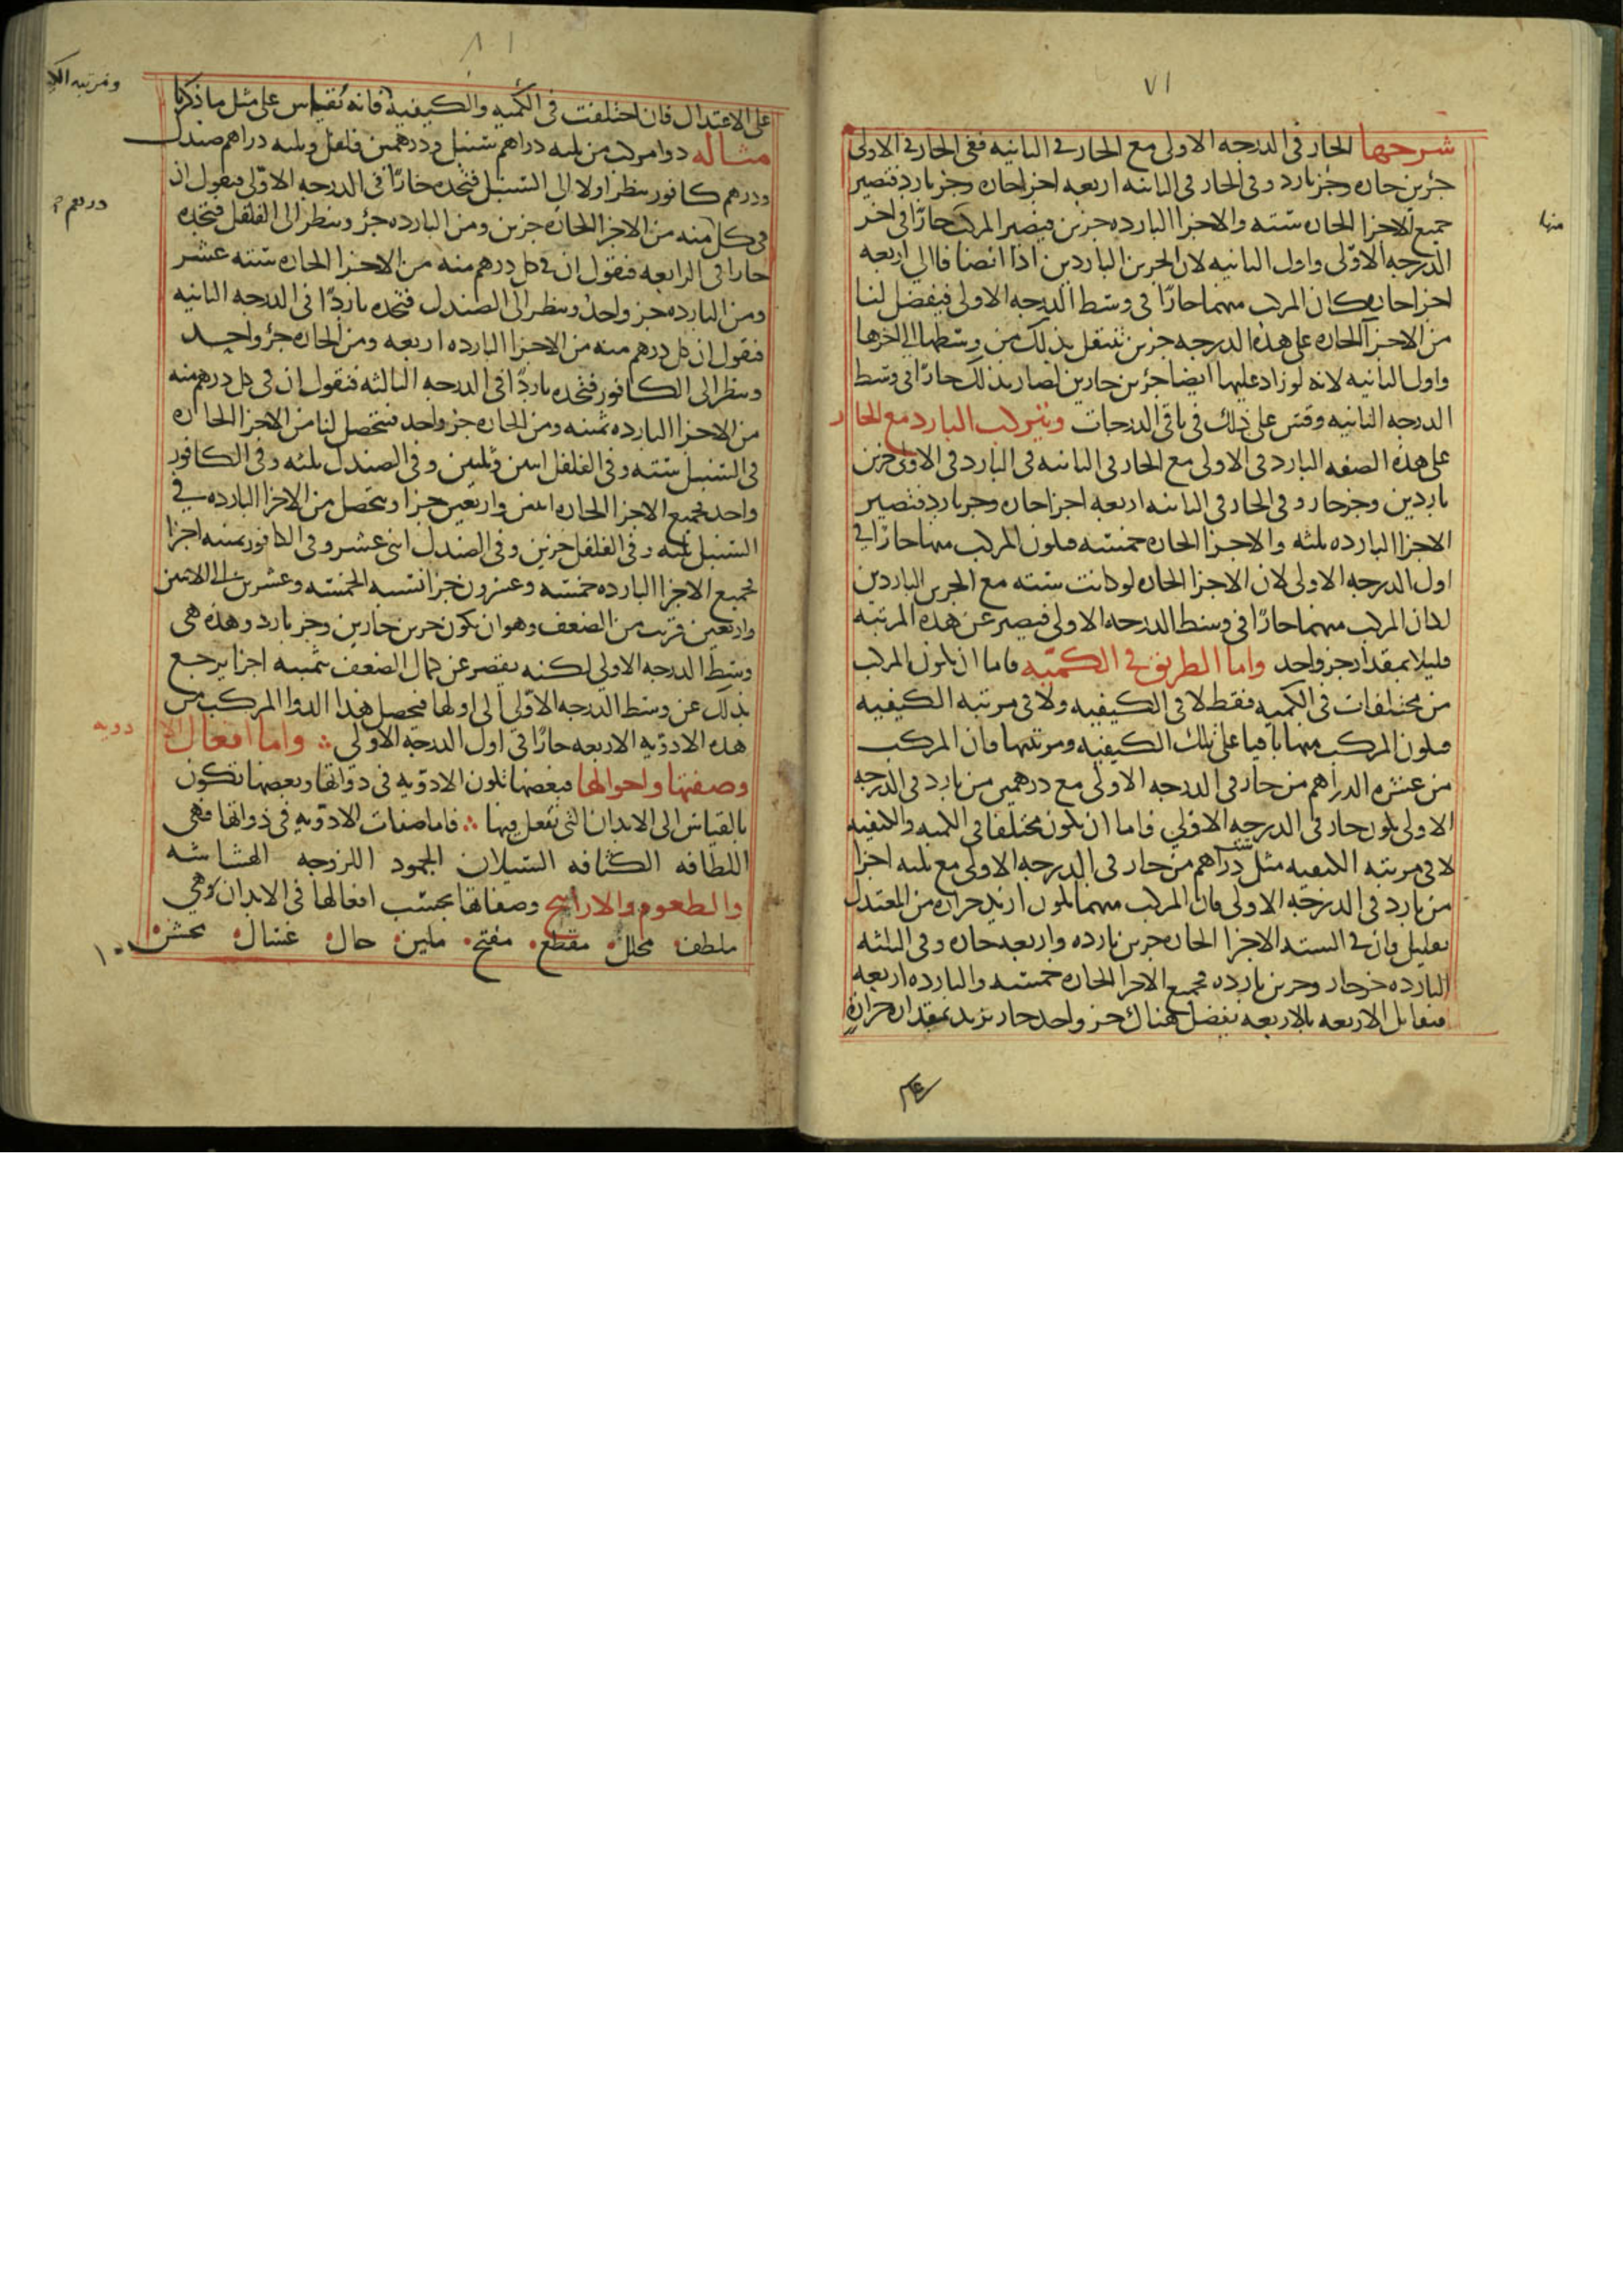 ٧١
شرحها الحار فى الدرجه الاولى مع الحار فى الثانيه ففى الحار فى الاولى
جزئين حاره وجز بارد وفى الحار فى الثانيه اربعه اجزا حاره وجز بارد فتصير
جميع الاجزا الحاره ستته والاجزا البارده جزين فيصير المركب حارًا فى اخر
منها
الدرجه الاولى واول الثانيه لان الجزين الباردين اذا انضافا الي اربعه
اجزا حاره كان المركب منهما حارًا فى وسط الدرجه الاولى فيفضل لنا
من الاجزا الحاره على هذه الدرجه جزين تنتقل بذلك من وسطها الي اخرها
واول الثانيه لانه لو زاد عليها ايضا جزين حارين لصار بذلك حارًا فى وسط
الدرجه الثانيه وقس على ذلك فى باقى الدرجات وتركيب البارد مع الحار
على هذه الصفه البارد فى الاولى مع الحار فى الثانيه فى البارد فى الاولى جزين
باردين وجز حار وفى الحار فى الثانيه اربعه اجزا حاره وجز بارد فتصير
الاجزا البارده ثلثه والاجزا الحاره خمسه فيكون المركب منها حارًا في
اول الدرجه الاولى لان الاجزا الحاره لو كانت ستته مع الجزين الباردين
لكان المركب منهما حارًا فى وسط الدرجه الاولى فيصير عن هذه المرتبه
قليلا بمقدار جز واحد واما الطريق فى الكميه فاما ان يكون المركب
من مختلفات فى الكميه فقط لا فى الكيفيه ولا فى مرتبه الكيفيه
فيكون المركب منها باقيا على تلك الكيفيه ومرتبتها فان المركب
من عشره الدراهم من حار فى الدرجه الاولى مع درهمين من بارد فى الدرجه
الاولى يكون حار فى الدرجه الاولي فاما ان يكون مختلفا فى الكميه والكيفيه
لا فى مرتبه الكيفيه مثل دراهم من حار فى الدرجه الاولى مع ثلثه اجزا
ستته
من بارد فى الدرجه الاولى فان المركب منهما يكون ازيد حراره من المعتدل
بقليل فان فى الستة الاجزا الحاره جزين بارده واربعه حاره وفى الثلثه
البارده جز حار وجزين بارده فجميع الاجزا الحاره خمسه والبارده اربعه
فتقابل الاربعه بالاربعه يفضل هناك جز واحد حار يزيد بمقدار حراره
٨١
على الاعتدال فان اختلفت فى الكميه والكيفيه فانه يقياس على مثل ما ذكرنا
ومرتبه الكـ
مثاله دوا مركب من ثلثه دراهم سنبل ودرهمين فلفل وثلثه دراهم صندل
ودرهم كافور ينظر اولا الى السنبل فتجده حارًا فى الدرجه الاولى فيقول ان
درهم
فى كل منه من الاجزا الحاره جزين ومن البارده جز وينظر الى الفلفل فتجده
حارا فى الرابعه فنقول ان فى كل درهم منه من الاجزا الحاره ستته عشر
ومن البارده جز واحد وينظر الى الصندل فتجده باردًا فى الدرجه الثانيه
فنقول ان كل درهم منه من الاجزا البارده اربعه ومن الحاره جز واحد
وينظر الى الكافور فتجده باردًا فى الدرجه الثالثه فنقول ان فى كل درهم منه
من الاجزا البارده ثمنيه ومن الحاره جز واحد فتحصل لنا من الاجزا الحاره
فى السنبل ستته وفى الفلفل اثنين وثلثين وفى الصندل ثلثه وفى الكافور
واحد فجميع الاجزا الحاره اثنين واربعين جزا ويتحصل من الاجزا البارده في
السنبل ثلثه وفى الفلفل جزين وفى الصندل اثنى عشر وفى الكافور ثمنيه اجزا
فجميع الاجزا البارده خمسه وعشرون جزا نسبه الخمسه وعشرين الى الاثنين
واربعين قريب من الضعف وهو ان يكون جزين حارين وجز بارد وهذه هى
وسط الدرجه الاولي لكنه يقصر عن كمال الضعف ثمنيه اجزا يرجع
بذلك عن وسط الدرجه الاولي الى اولها فيحصل هذا الدوا المركب من
هذه الادويه الاربعه حارًا في اول الدرجه الاولي واما افعال الادويه
وصفتها واحوالها فبعضها يكون الادويه فى ذواتها وبعضها تكون
بالقياس الى الابدان التى تفعل فيها فاما صفات الادويه فى ذواتها فهى
اللطافه الكثافه السيلان الجمود اللزوجه الهشاشه
والطعوم والارايح وصفاتها بحسب افعالها فى الابدان وهي
ملطف محلل مقطع مفتح ملين حال غسال مخشن